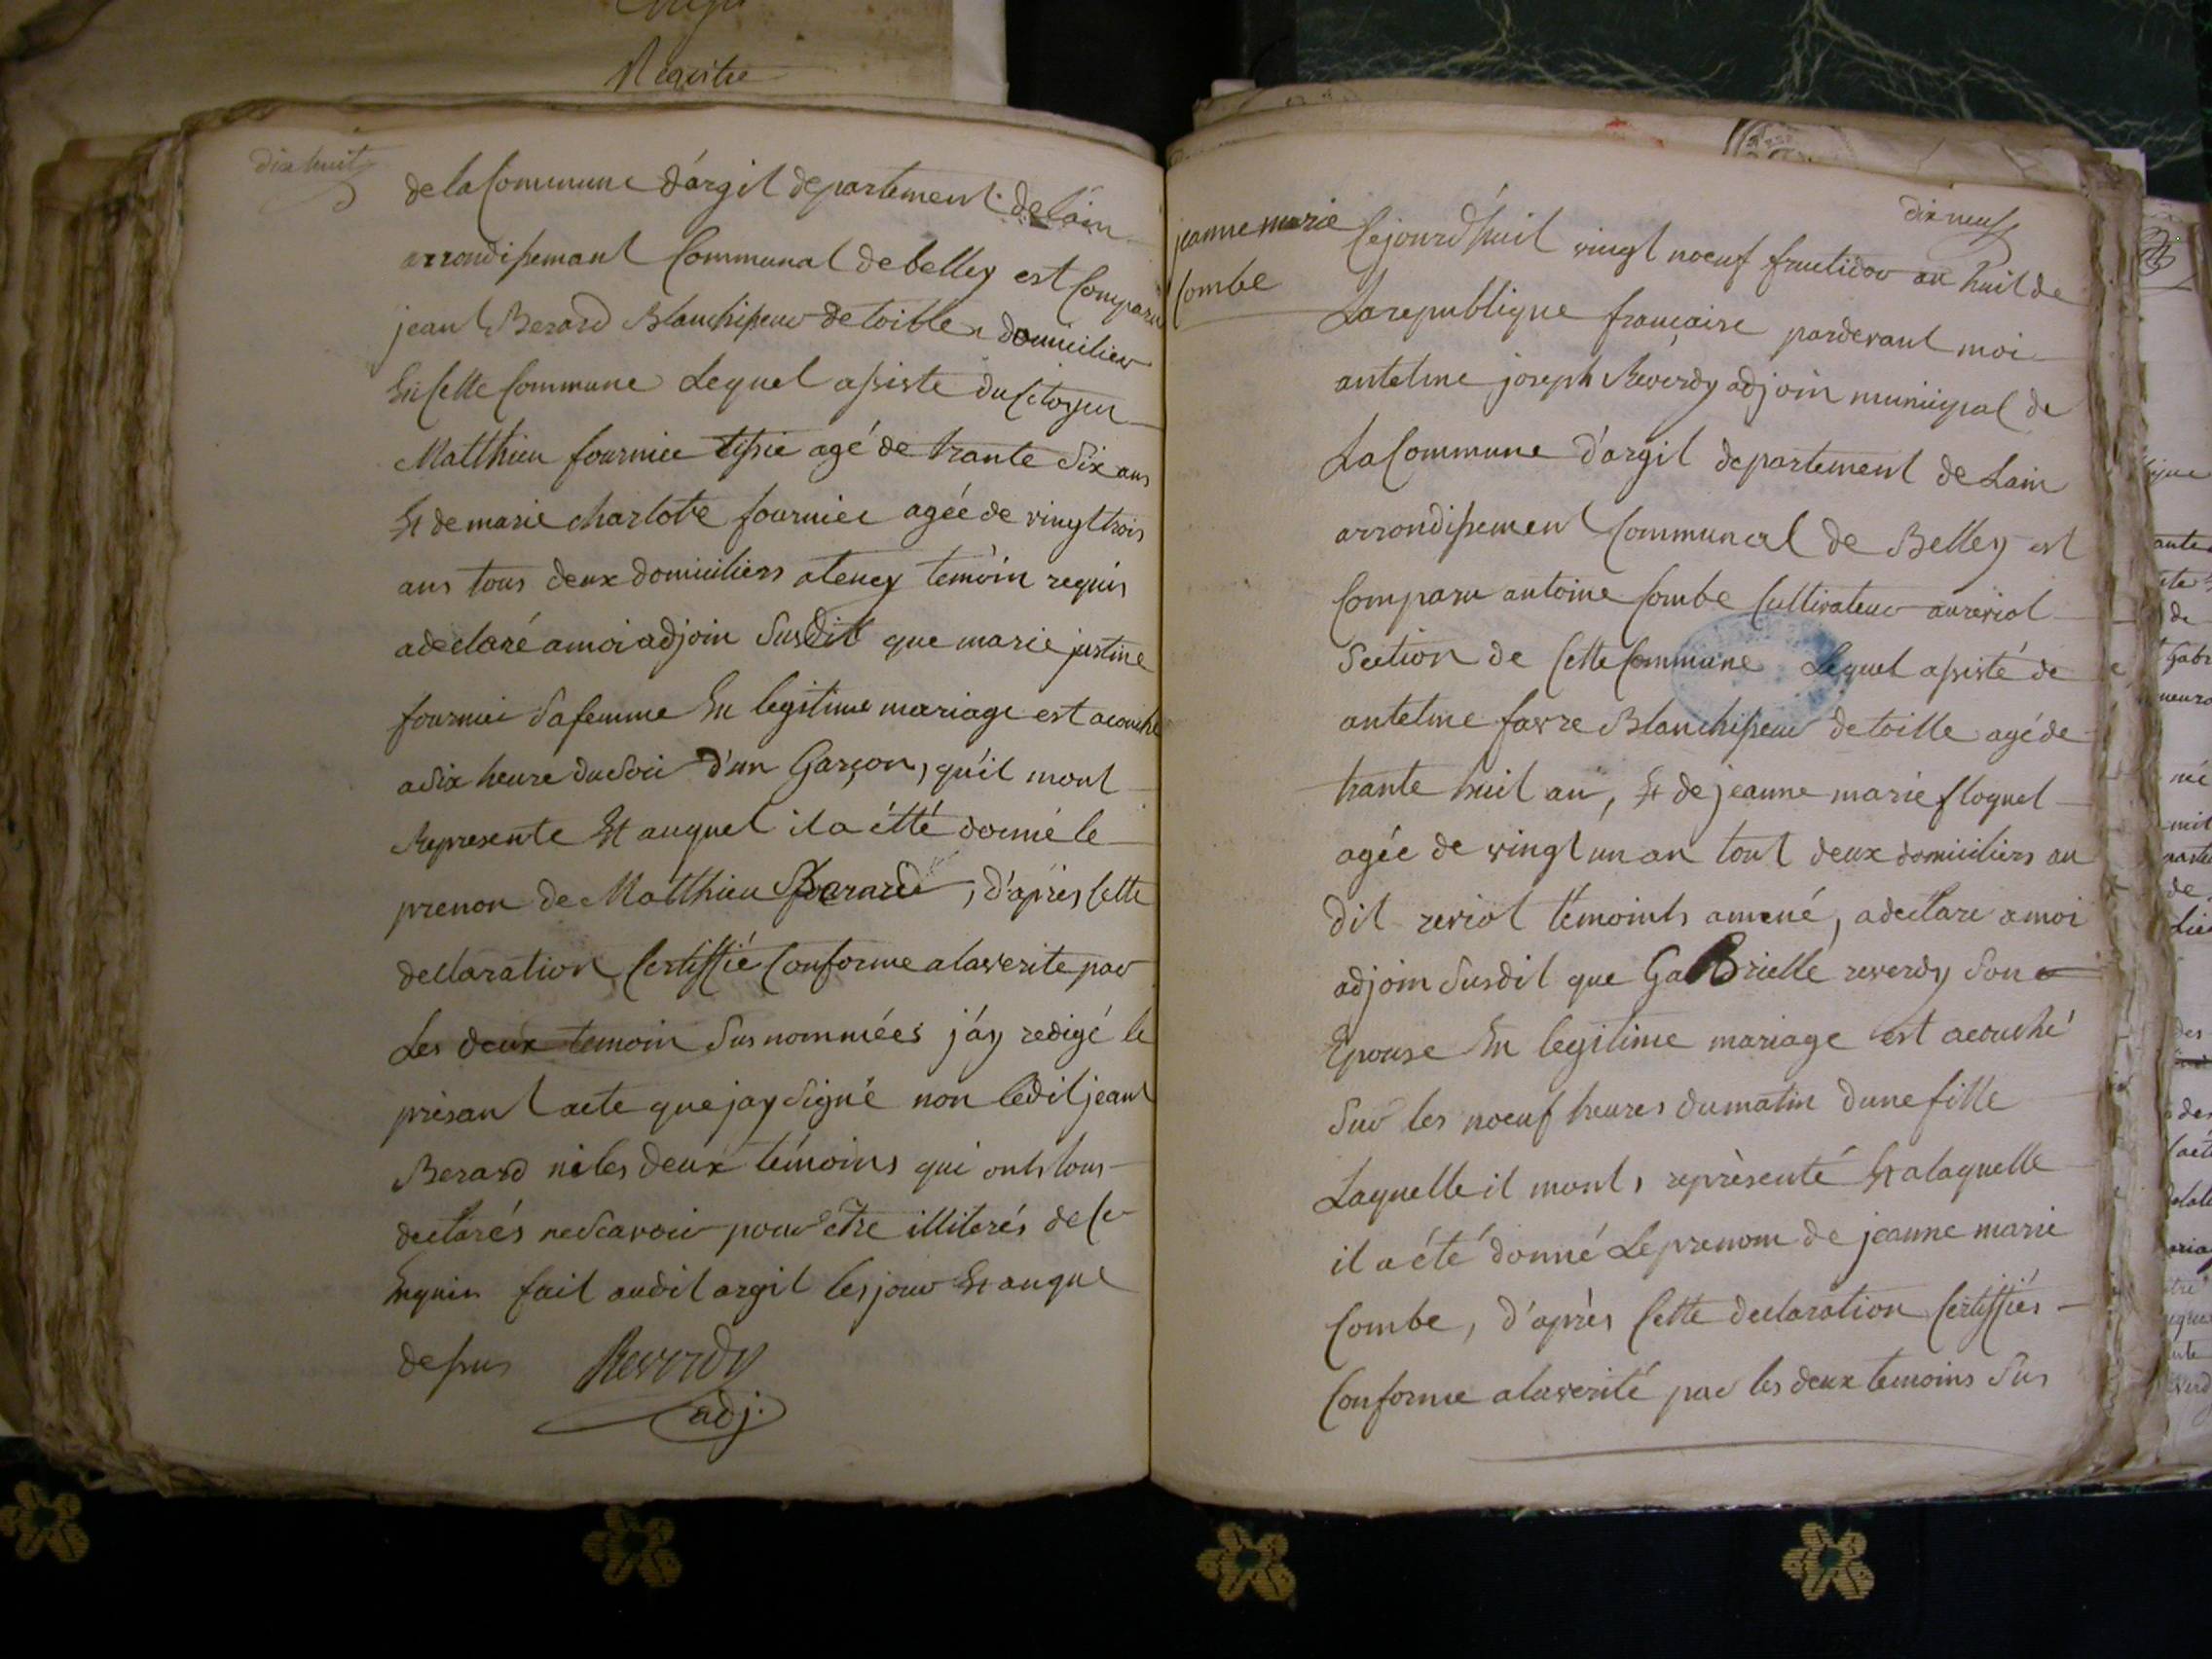 Registre
dix huit
de la Commune d'argil departement de lain
arrondissemant Communal de belley est Comparu
jean Berard Blanchisseur de toille domicilier
En Cette Commune Lequel assiste du Citoyen
Matthieu fournier agé de trante Six ans
Et de marie charlote fournier agée de vingt trois
ans tous deux domiciliers a tenay temoin requis
a declaré a moi adjoin Susdit que marie justine
fournier Sa femme En legitime mariage est acouché
a Six heure du Soir d'un Garçon, qu'il mont
Represente Et auquel il a étté donné le
prenon de Matthieu Berard, d'après Cette
declaration Certiffié Conforme a la verite par
Les deux temoin Sus nommées j'áy redigé le
présant acte que jay Signé non ledit jean
Berard ni les deux témoins qui onts tous
declarés ne Scavoir pour être illiterés de Ce
Enquis fait audit argil les jour Et an que
dessus Reverdy
adj.
dix neuf
jeanne marie
Combe
Cejourd'huit vingt noeuf fructidor an huit de
La republique francaise pardevant moi
antelme joseph Reverdy adjoin municipal de
La Commune d'argil departement de Lain
arrondissement Communal de Belley est
Comparu antoine Combe Cultivateur au reviol
Section de Cette Commune Lequel assisté de
antelme favre Blanchisseur de toille agé de
trante huit an, Et de jeanne marie floquet
agée de vingt un an tout deux domiciliers au
dit reviol témoints amené, a declare a moi
adjoin Susdit que GaBrielle reverdy Son
Epouse En legitime mariage est acouché
Sur les noeuf heures du matin dune fille
Laquelle il monts représenté Et a laquelle
il a été donné Le prenom de jeanne marie
Combe, d'après Cette declaration Certiffiés
Conforme a la verité par les deux temoins Sus